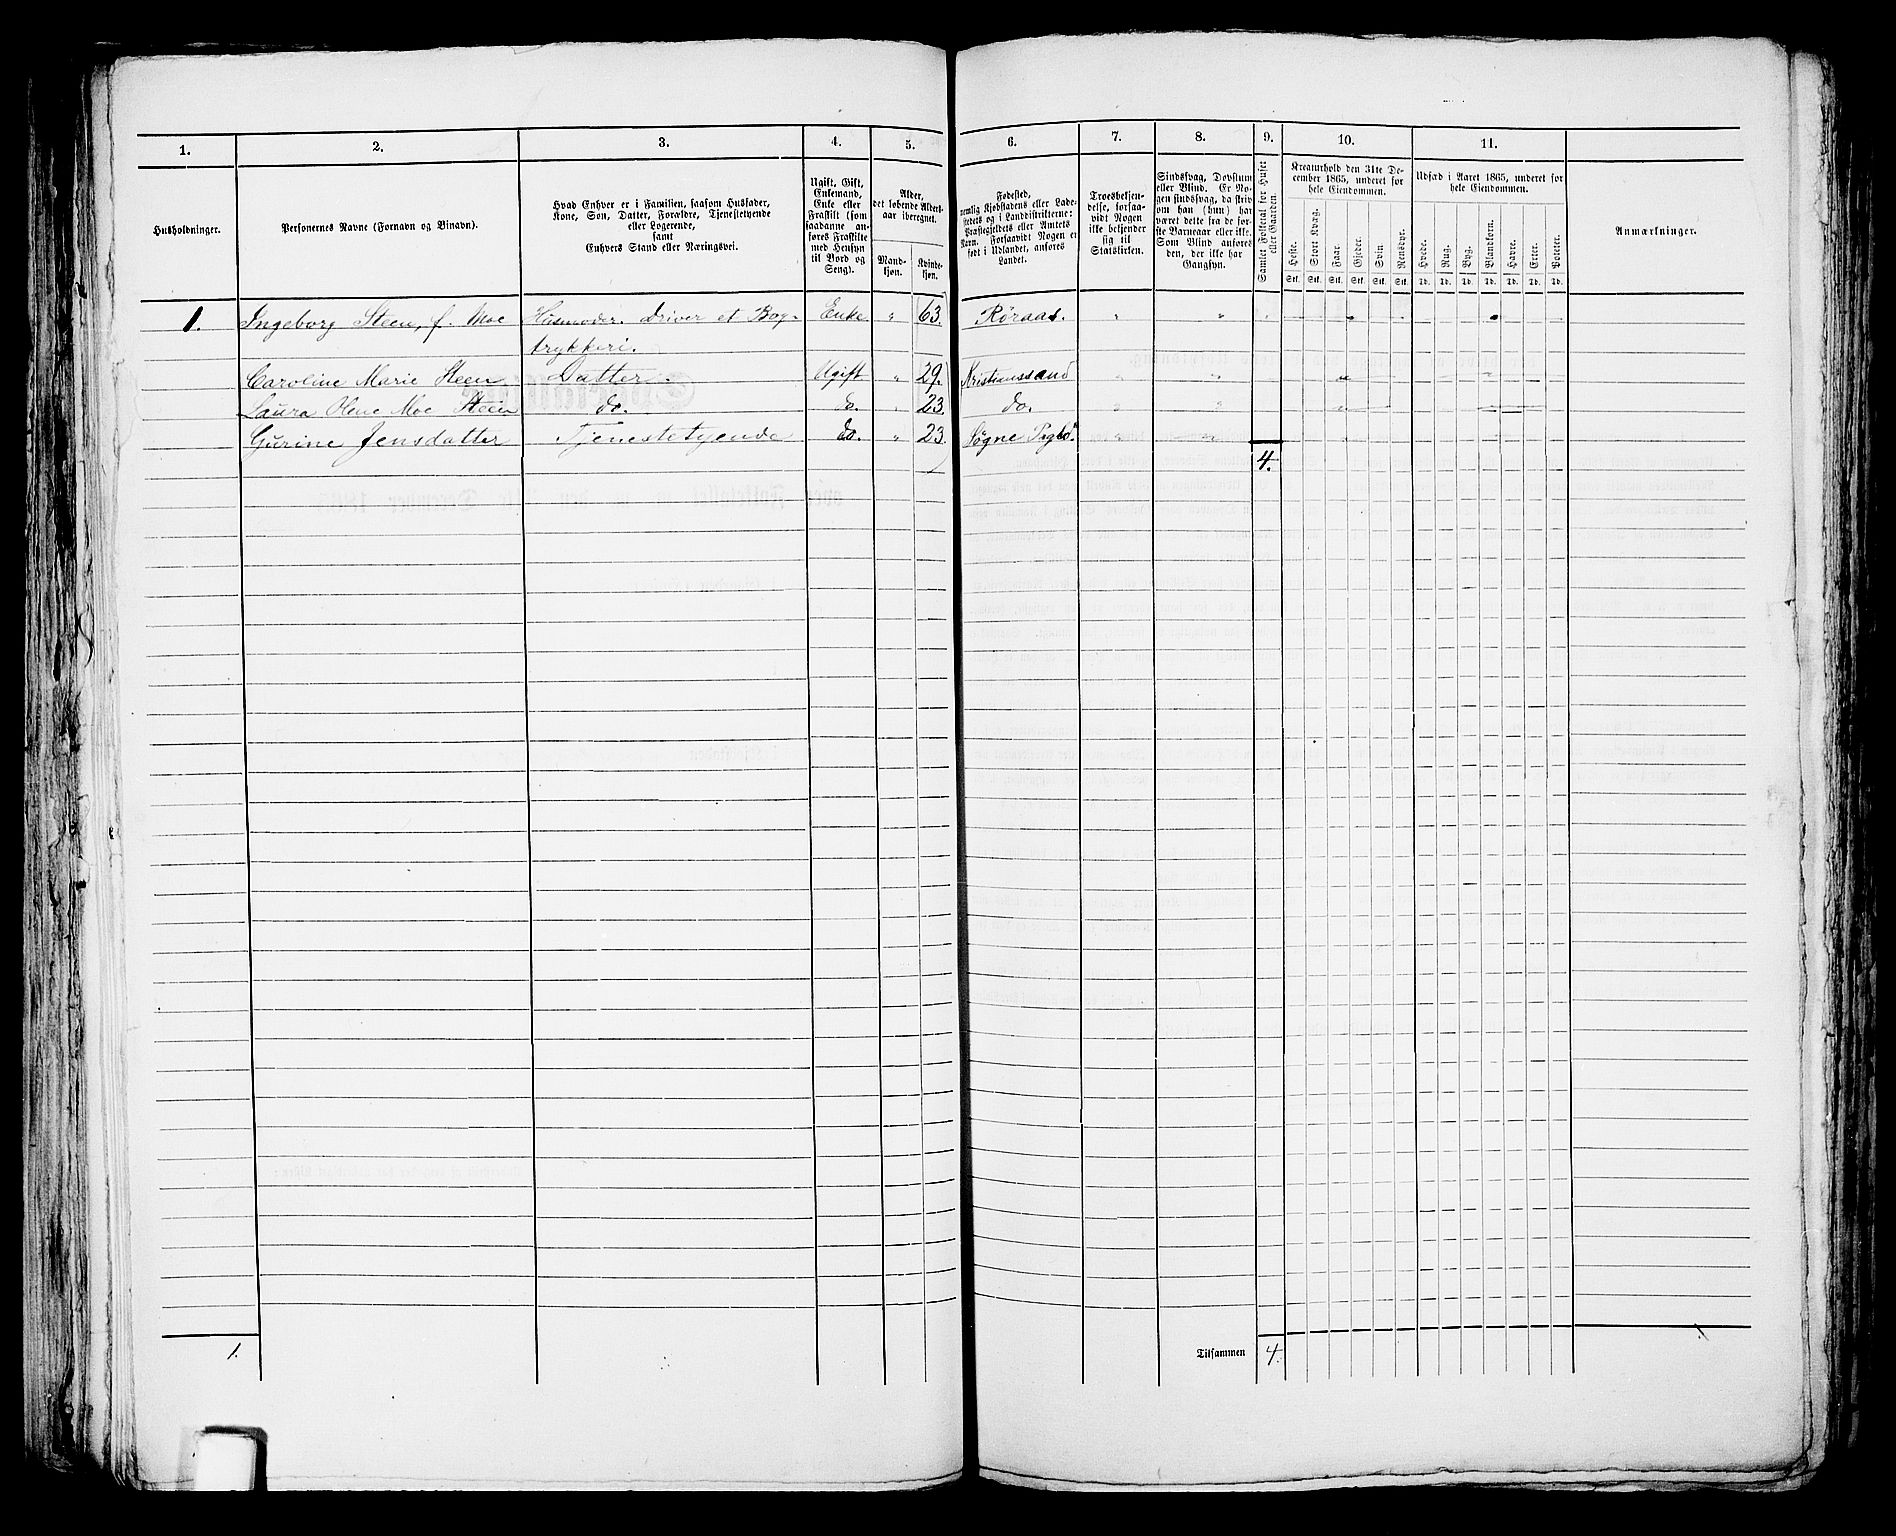 1. 2. 3. 4. 5. 6. 7. 8. 9. 10. 11.
Husholdninger.
Personernes Navne (Fornavn og Binavn).
Hvad Enhver er i Familien, saasom Husfader,
Kone, Søn, Datter, Forældre, Tjenestetyende
eller Logerende,
samt
Enhvers Stand eller Næringsvei.
Ugift, Gift,
Enkemand,
Enke eller
Fraskilt (som
saadanne an-
føres Fraskilte
med Hensyn
til Bord og
Seng).
Alder,
det løbende Alders-
aar iberegnet.
Mand-
kjøn.
Kvinde-
kjøn.
Fødested,
nemlig Kjøbstadens eller Lade-
stedets og i Landdistrikterne:
Præstegjeldets eller Amtets
Navn. Forsaavidt Nogen er
født i Udlandet, anføres
Landet.
Troesbekjen-
delse, forsaa-
vidt Nogen
ikke bekjender
sig til
Statskirken.
Sindssvag, Døvstum
eller Blind. Er No-
gen sindssvag, da skriv
om han (hun) har
været dette fra de før-
ste Barneaar eller ikke.
Som Blind anføres
den, der ikke har
Gangsyn.
Samlet Folketal for Huset
eller Gaarden.
Kreaturhold den 31te De-
cember 1865, underet for
hele Eiendommen.
Heste. Stort Kvæg. Faar. Gjeder. Svin. Rensdyr.
Stk. Stk. Stk. Stk. Stk. Stk.
Udsæd i Aaret 1865, underet for
hele Eiendommen.
Hvede. Rug. Byg. Blandkorn. Havre. Erter. Poteter.
Td. Td. Td. Td. Td. Td. Td.
Anmærkninger.
1. Ingeborg Steen, f. Moe Husmoder. Driver et Bog- Enke " 63. Røraas. " "
trykkeri.
Caroline Marie Steen Datter. Ugift " 29. Kristianssand " "
Laura Olene Moe Steen do. do. " 23. do. " "
Gurine Jensdatter Tjenestetyende do. " 23. Søgne " "
4.
1. Tilsammen 4.